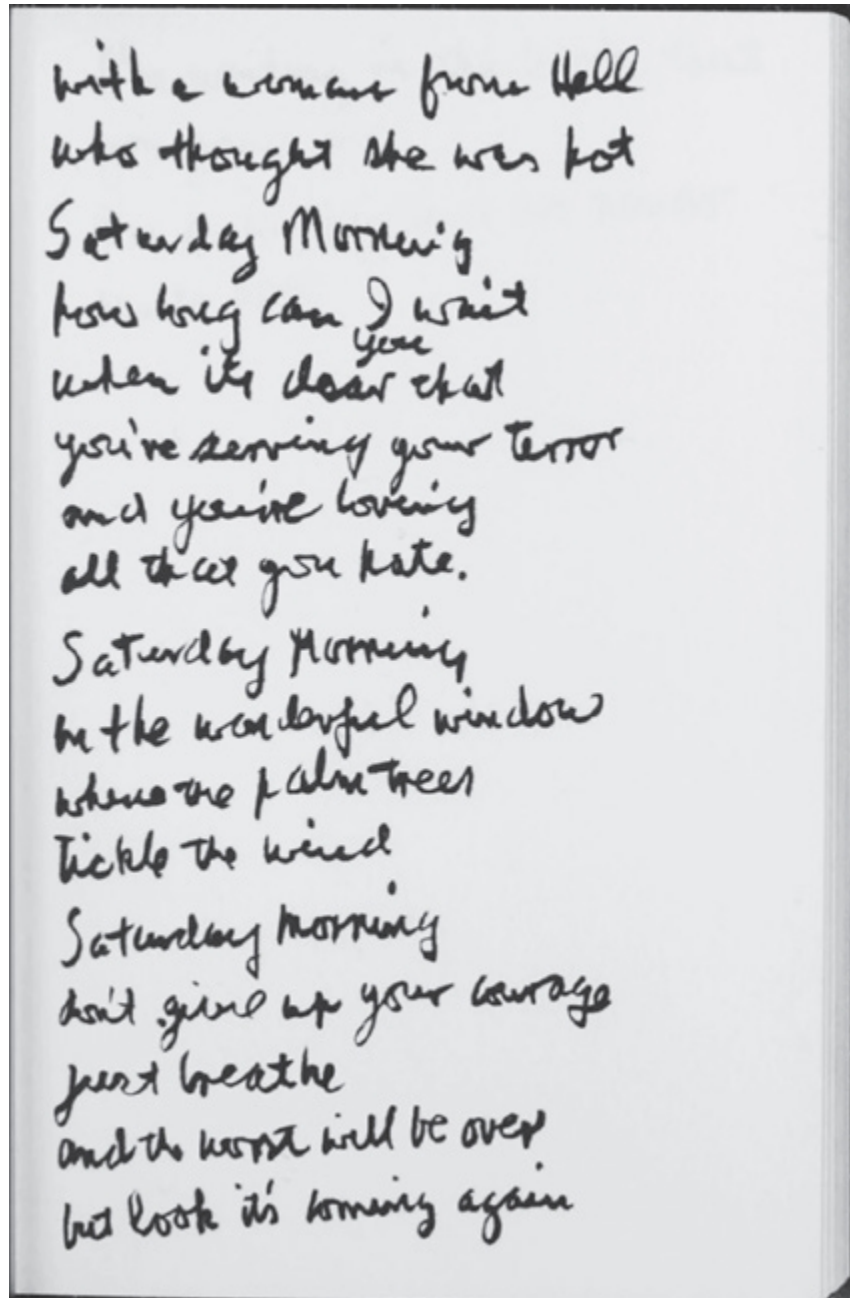 with a woman from Hell
who thought she was hot
Saturday Morning
how long can I wait
you
when it's clear that
you're serving your terror
and you're loving
all that you hate.
Saturday Morning
in the wonderful window
where the palm trees
tickle the wind
Saturday morning
don't give up your courage
just breathe
and the worst will be over
but look it's coming again